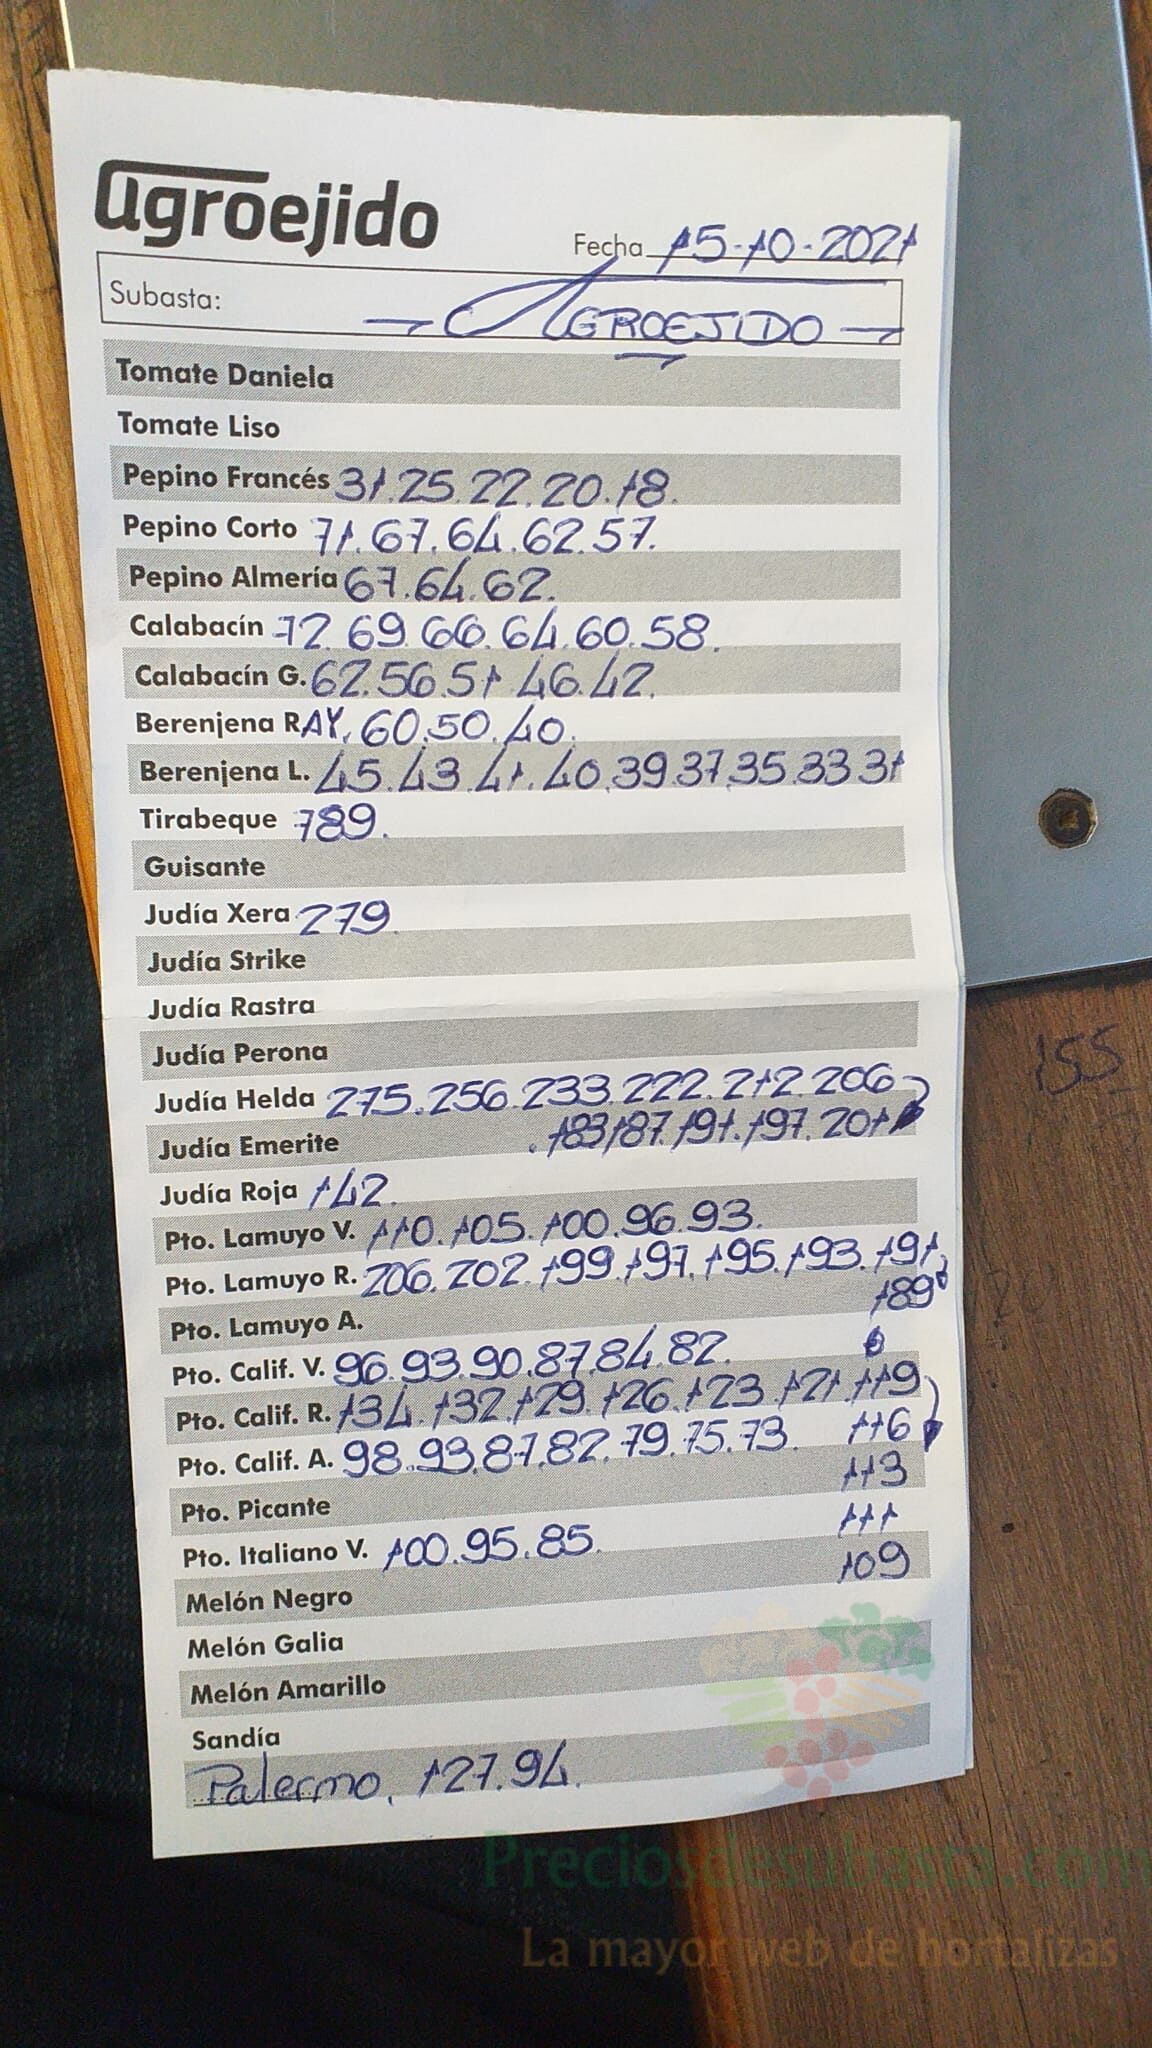 agroejido
Fecha 15-10-2021
Subasta: AGROEJIDO
Tomate Daniela
Tomate Liso
Pepino Francés 31.25.22.20.18.
Pepino Corto 71.67.64.62.57.
Pepino Almería 67.64.62.
Calabacín 72.69.66.64.60.58.
Calabacín G. 62.56.51 46.42.
Berenjena RAY. 60.50.40.
Berenjena L. 45.43.41.40.39.37.35.33 31
Tirabeque 789.
Guisante
Judía Xera 279.
Judía Strike
Judía Rastra
Judía Perona
Judía Helda 275.256.233.222.212.206
Judía Emerite .183.187.191.197.201
Judía Roja 142.
Pto. Lamuyo V. 110.105.100.96.93.
Pto. Lamuyo R. 206.202.199.197.195.193.191
189
Pto. Lamuyo A.
Pto. Calif. V. 96.93.90.87.84.82.
Pto. Calif. R. 134.132.129.126.123.121.119
116
Pto. Calif. A. 98.93.87.82.79.75.73.
113
Pto. Picante
111
Pto. Italiano V. 100.95.85.
109
Melón Negro
Melón Galia
Melón Amarillo
Sandía
Palermo. 127.94.
155
Preciosdesubasta.com
La mayor web de hortalizas